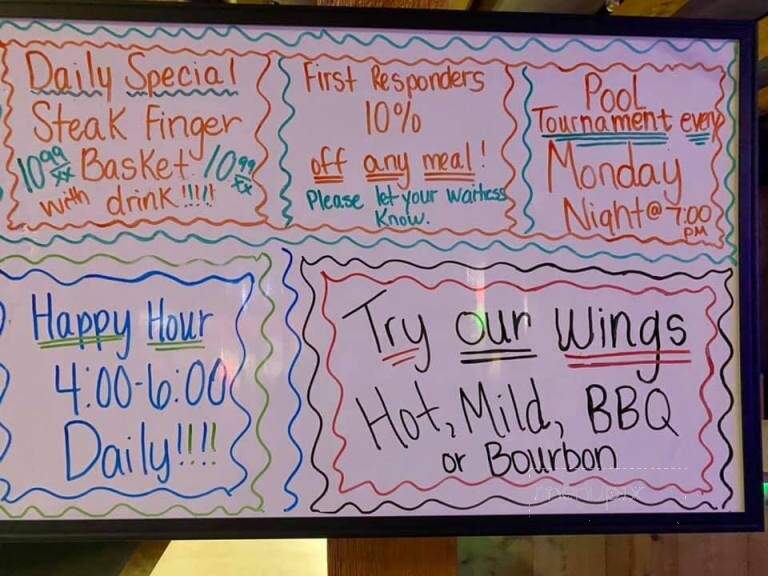 Daily Special
Steak Finger
10 99/xx Basket 10 99/xx
with drink!!!!!
First Responders
10%
off any meal!
Please let your waitress
know.
Pool
Tournament every
Monday
Night @ 7:00
PM
Happy Hour
4:00-6:00
Daily!!!!
Try our Wings
Hot, Mild, BBQ
or Bourbon
menupix